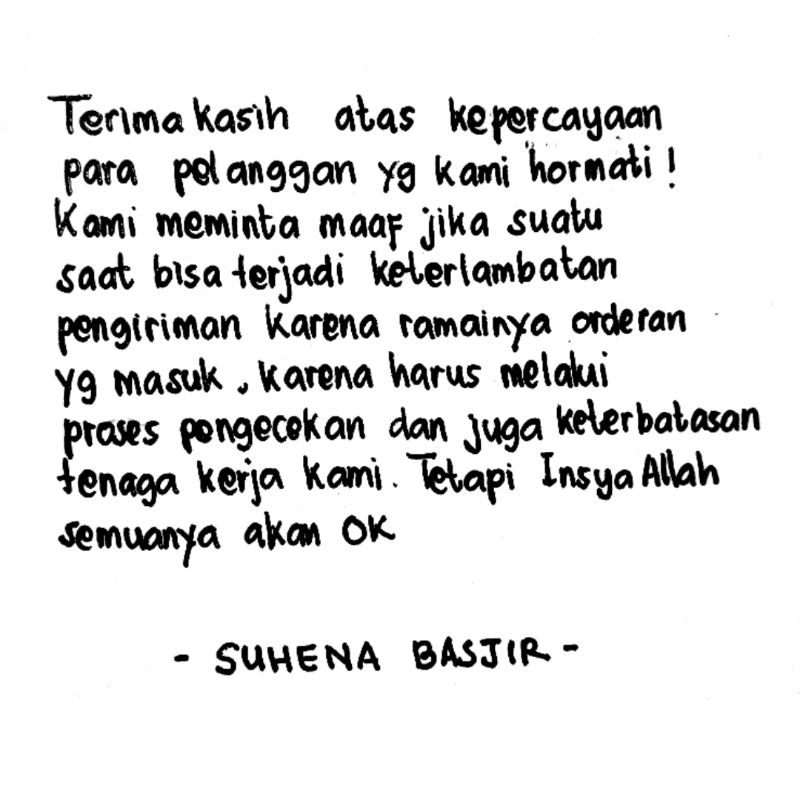 Terima kasih atas kepercayaan
para pelanggan yg kami hormati !
Kami meminta maaf jika suatu
saat bisa terjadi keterlambatan
pengiriman karena ramainya orderan
yg masuk , karena harus melalui
proses pengecekan dan juga keterbatasan
tenaga kerja kami. Tetapi Insya Allah
semuanya akan OK
- SUHENA BASJIR -